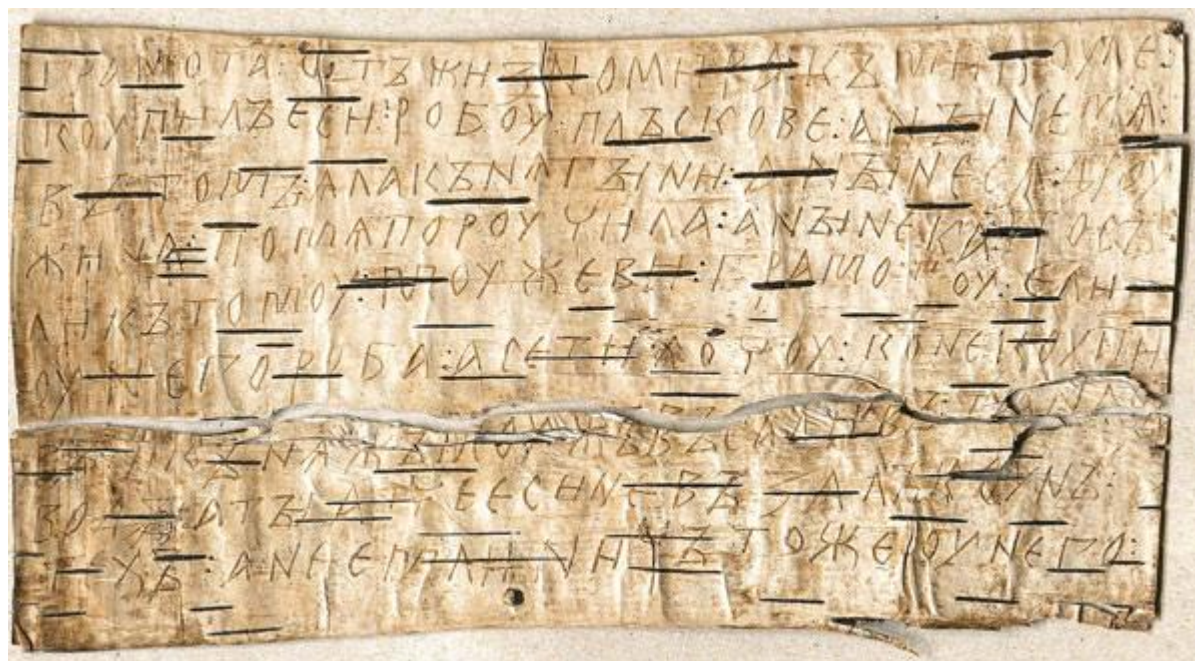 грамота : ѡтъ жизномира къ микоуле :
коупилъ еси : робоу : плъскове : а нꙑне мѧ :
въ томъ : ѧла кънѧгꙑни : а нꙑне сѧ дроу
жина : по мѧ пороучила : а нꙑне ка : посъ
ли къ томоу : моужеви : грамотоу : е ли
оу него роба : а се ти хочоу : коне коупи
въ и кънѧжъ моужъ въсадивъ та на съ
водꙑ а тꙑ атче еси не възалъ коунъ :
техъ : а не емли ничъто же оу него :